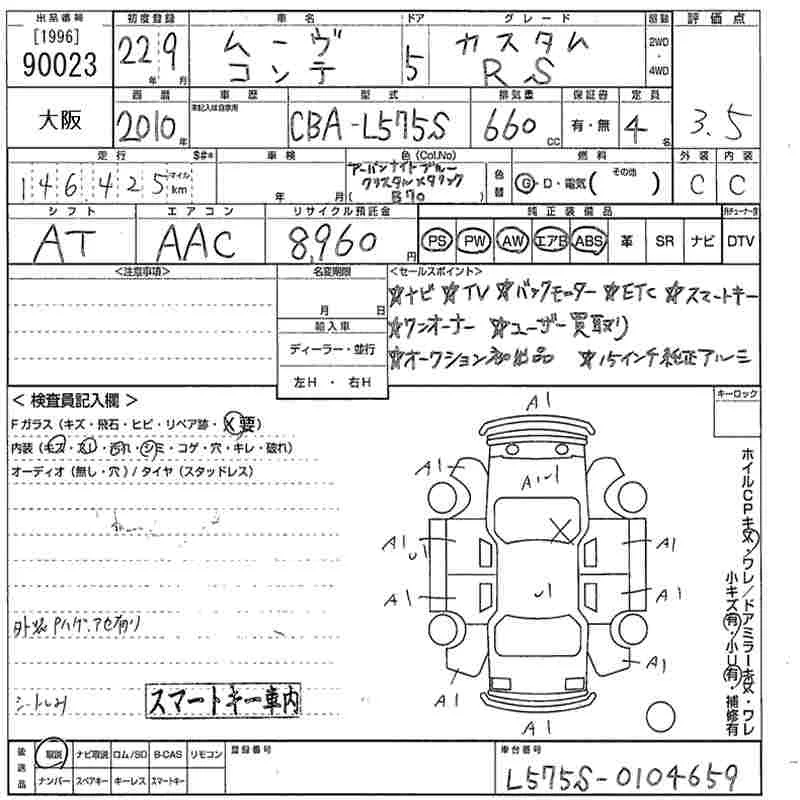 出品番号 初度登録 車名 ドア グレード 駆動 評価点
[1996] 90023 22年 9月 ムーヴ コンテ 5 カスタム RS 2WD・4WD 3.5
大阪 西暦 車歴 型式 排気量 保証書 定員
2010年 未記入は自家用 CBA-L575S 660cc 有・無 4名
走行 $#* 車検 色(Col.No) 色替 燃料 外装 内装
146,425 マイル km 年 月 アーバンナイトブルー クリスタルメタリック (B70) G・D・電気( その他 ) C C
シフト エアコン リサイクル預託金 純正装備品
AT AAC 8,960円 PS PW AW エアB ABS 革 SR ナビ DTV
<注意事項> 名変期限 <セールスポイント>
月 日 ☆ナビ ☆TV ☆バックモニター ☆ETC ☆スマートキー
輸入車 ☆ワンオーナー ☆ユーザー買取り
ディーラー・並行 ☆オークション初出品 ☆15インチ純正アルミ
左H・右H
<検査員記入欄> キーロック
Fガラス(キズ・飛石・ヒビ・リペア跡・X要)
内装(キズ・スレ・汚れ・シミ・コゲ・穴・キレ・破れ)
オーディオ(無し・穴)/タイヤ(スタッドレス)
A1
A1 A1 U1 A1
X
A1 U1 A1
A1 U1 A1
A1 A1
A1
外装Pハゲ、アセ有り
シートしみ
スマートキー車内
ホイルCPキズ・ワレ/ドアミラーキズ・ワレ
小キズ有・小U有・補修有
後送品 取説 ナビ取説 ロム/SD B-CAS リモコン 登録番号 車台番号
ナンバー スペアキー キーレス スマートキー L575S-0104659